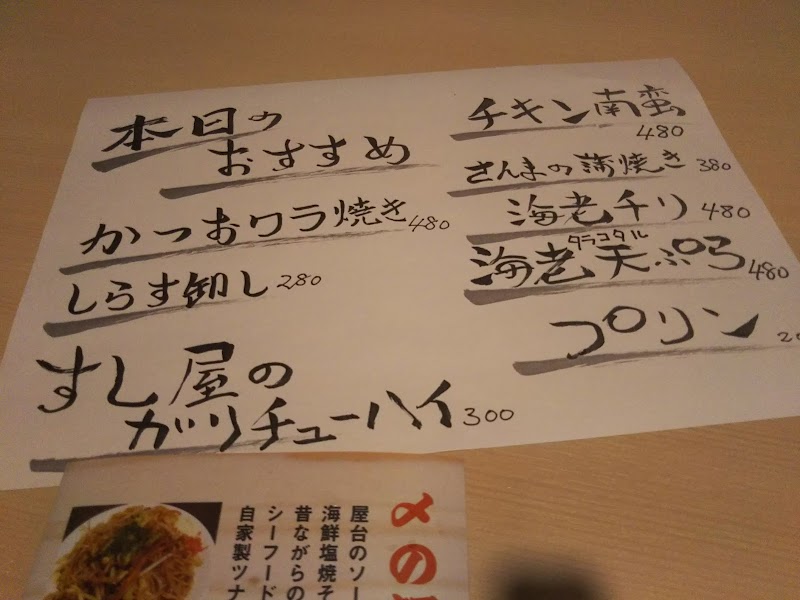 本日の
おすすめ
かつおワラ焼き 480
しらす卸し 280
すし屋の
ガリチューハイ 300
チキン南蛮
480
さんまの蒲焼き 380
海老チリ 480
タラコタル
海老天ぷら 480
プリン 20
〆の
屋台のソー
海鮮塩焼そ
昔ながらの
シーフード
自家製ツナ